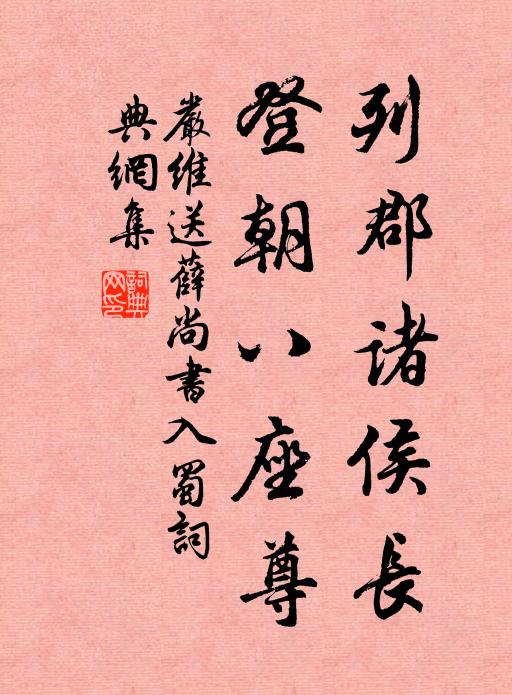 列郡诸侯長
登朝八座尊
嚴維送薛尚書入蜀詞
典網集
詞典网印